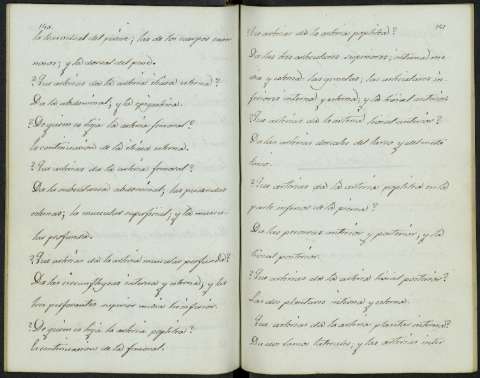 140
la transversal del perine; las de los cuerpos caver-
nosos; y la dorsal del pene.
¿Que arterias da la arteria iliaca esterna?
Da la abdominal, y la epigastrica.
¿De quien es hija la arteria femoral?
la continuacion de la iliaca esterna.
¿Que arterias da la arteria femoral?
Da la subcutanea abdominal; las pudendas
esternas; la muscular superficial; y la muscu-
lar profunda.
¿Que arterias da la arteria muscular profunda?
Da las circumflejas interna y esterna; y las
tres perforantes superior media é inferior.
¿De quien es hija la arteria poplitea?
la continuacion de la femoral.
141
Que arterias da la arteria poplitea?
Da las tres articulares superiores; interna, me-
dia y esterna; las gemelas; las articulares in-
feriores interna y esterna; y la tibial anterior.
Que arterias da la arteria tibial anterior?
Da las arterias dorsales del tarso y del meta-
tarso.
¿Que arterias da la arteria poplitea en la
parte inferior de la pierna?
Da las peroneas anterior y posterior; y la
tibial posterior.
¿Que arterias da la arteria tibial posterior?
Las dos plantares interna y esterna.
Que arterias da la arteria plantar interna?
Da sus ramos laterales; y las arterias inter